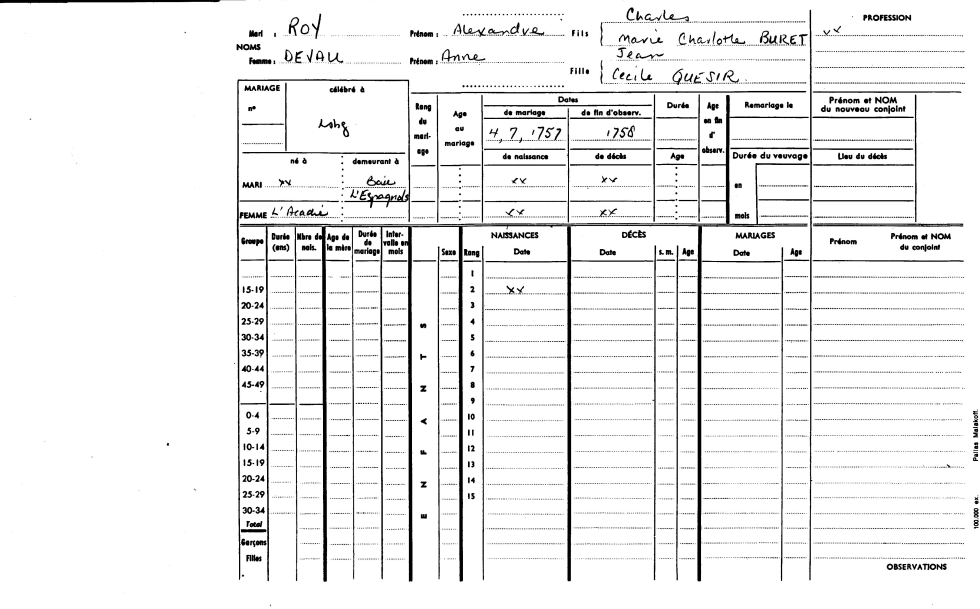 Charles
Mari : ROY Prénom : Alexandre Fils Marie Charlotte BURET PROFESSION xx
NOMS
Jean
Femme : DEVAU Prénom : Anne
Fille Cecile QUESIR
MARIAGE célébré à
n° Lsbg
Rang du mariage Age au mariage Dates Durée Age en fin d'observ. Remariage le Prénom et NOM du nouveau conjoint
de mariage de fin d'observ.
4, 7, 1757 1758
de naissance de décès Age Durée du veuvage Lieu du décès
né à demeurant à
MARI xx Baie L'Espagnols xx xx en
FEMME L'Acadie xx xx mois
Groupe Durée (ans) Nbre de nais. Age de la mère Durée de mariage Intervalle en mois ENFANTS Sexe Rang NAISSANCES Date DÉCÈS Date s. m. Age MARIAGES Date Age Prénom Prénom et NOM du conjoint
1
15-19 2 xx
20-24 3
25-29 4
30-34 5
35-39 6
40-44 7
45-49 8
9
0-4 10
5-9 11
10-14 12
15-19 13
20-24 14
25-29 15
30-34
Total
Garçons
Filles
OBSERVATIONS
100.000 ex. Pallas Malakoff.